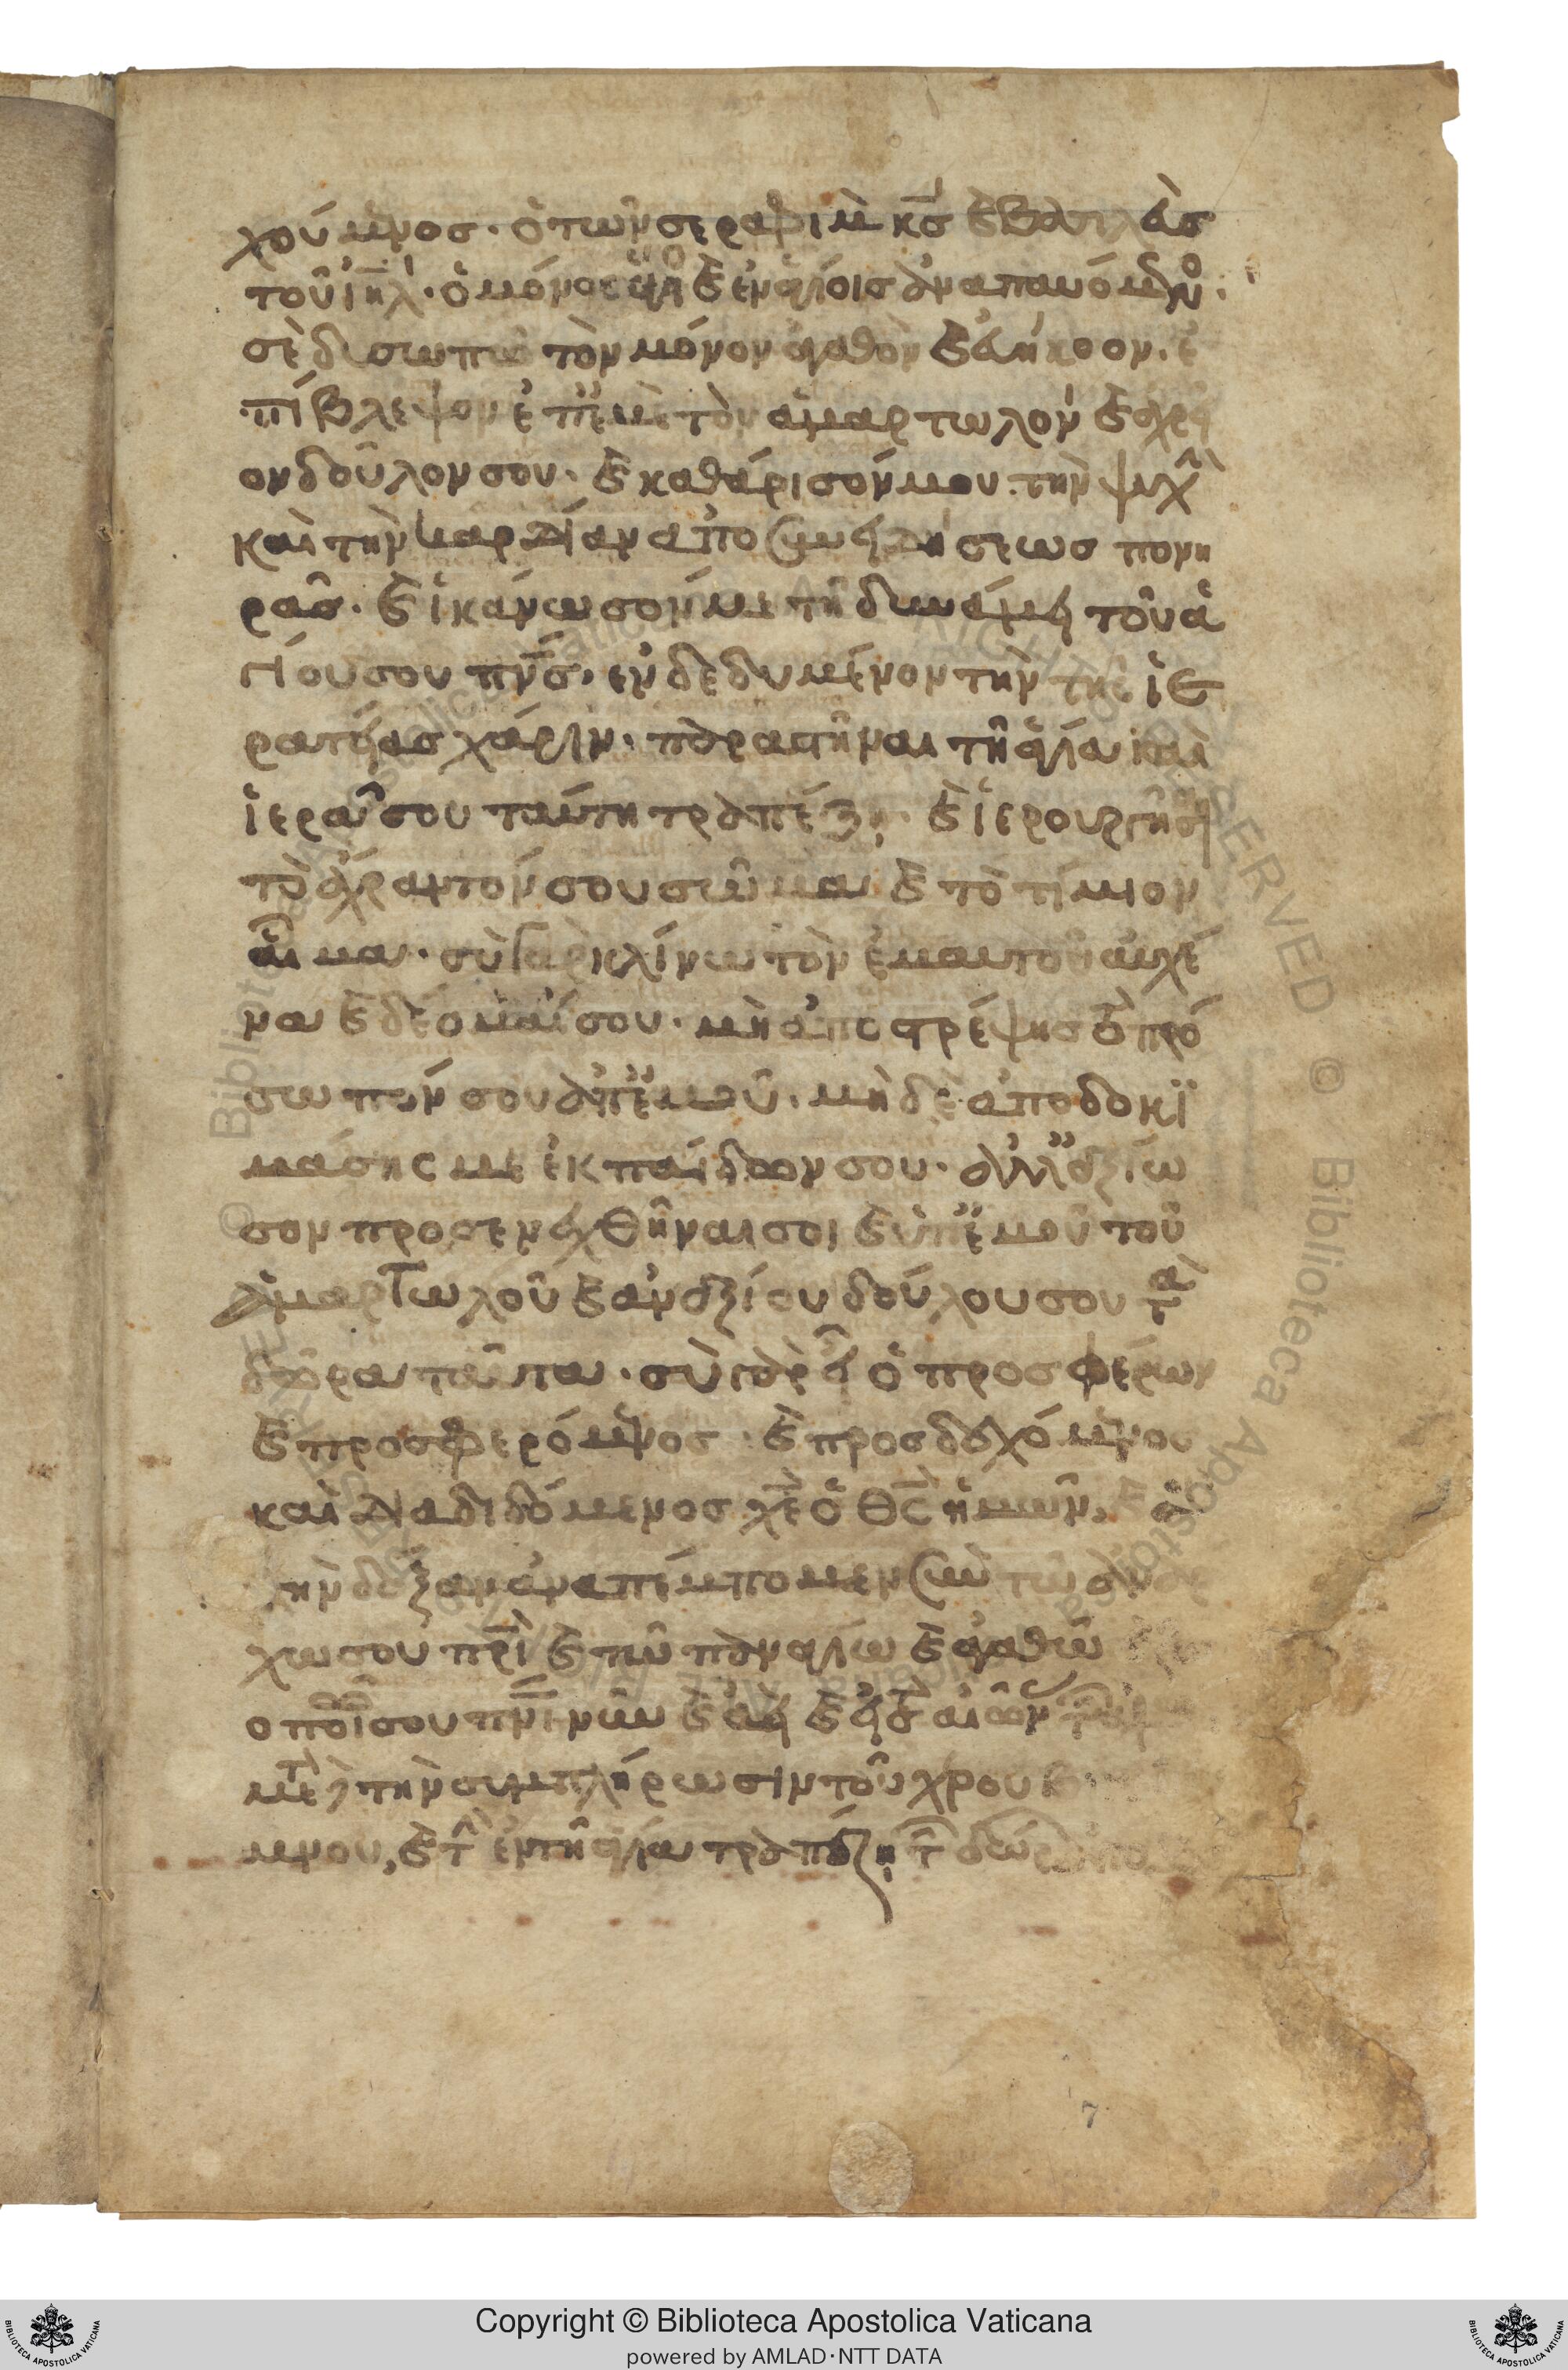 χούμενος· ὁ τῶν σεραφὶμ κς ϗ βασιλεὺς
τοῦ ιηλ· ὁ μόνος ἅγιος ϗ ἐν ἁγίοις ἀναπαυόμενος·
σὲ δυσωπῶ τὸν μόνον ἀγαθὸν ϗ εὐήκοον· ἐ
πίβλεψον ἐπ' ἐμὲ τὸν ἁμαρτωλὸν ϗ ἀχρεῖ
ον δοῦλον σου· ϗ καθάρισόν μου τὴν ψυχὴν
καὶ τὴν καρδίαν ἀπὸ συνειδήσεως πονη
ρᾶς· ϗ ἱκάνωσόν με τῇ δυνάμει τοῦ ἁ
γίου σου πνς· ἐνδεδυμένον τὴν τῆς ἱε
ρατείας χάριν· παραστῆναι τῇ ἁγίᾳ καὶ
ἱερᾷ σου ταύτῃ τραπέζῃ· ϗ ἱερουργῆσαι
τὸ ἄχραντόν σου σῶμα ϗ τὸ τίμιον
αἷμα· σοὶ γὰρ κλίνω τὸν ἐμαυτοῦ αὐχέ
να ϗ δέομαί σου· μὴ ἀποστρέψῃς τὸ πρό
σωπόν σου ἀπ' ἐμοῦ· μὴ δὲ ἀποδοκι
μάσῃς με ἐκ παίδων σου· ἀλλ' ἀξίω
σον προσενεχθῆναι σοι ϗ ὑπ' ἐμοῦ τοῦ
ἁμαρτωλοῦ ϗ ἀναξίου δούλου σου τὰ
δῶρα ταῦτα· σὺ γὰρ εἶ ὁ προσφέρων
ϗ προσφερόμενος· ϗ προσδεχόμενος
καὶ διαδιδόμενος χε ὁ θς ἡμῶν·
τὴν δόξαν ἀναπέμπομεν σὺν τῷ ἀνάρ
χω σου πρι ϗ τῷ παναγίω ϗ ἀγαθῷ
οποιῶ σου πνι· νῦν ϗ ἀεὶ ϗ εἰς τοὺς αἰῶνας
μετὰ τὴν συμπλήρωσιν τοῦ χερουβι
μνου, ϗ τῶν ἐν τῇ ἁγίᾳ τραπέζῃ τῶν δώρων
7
Copyright © Biblioteca Apostolica Vaticana
powered by AMLAD·NTT DATA